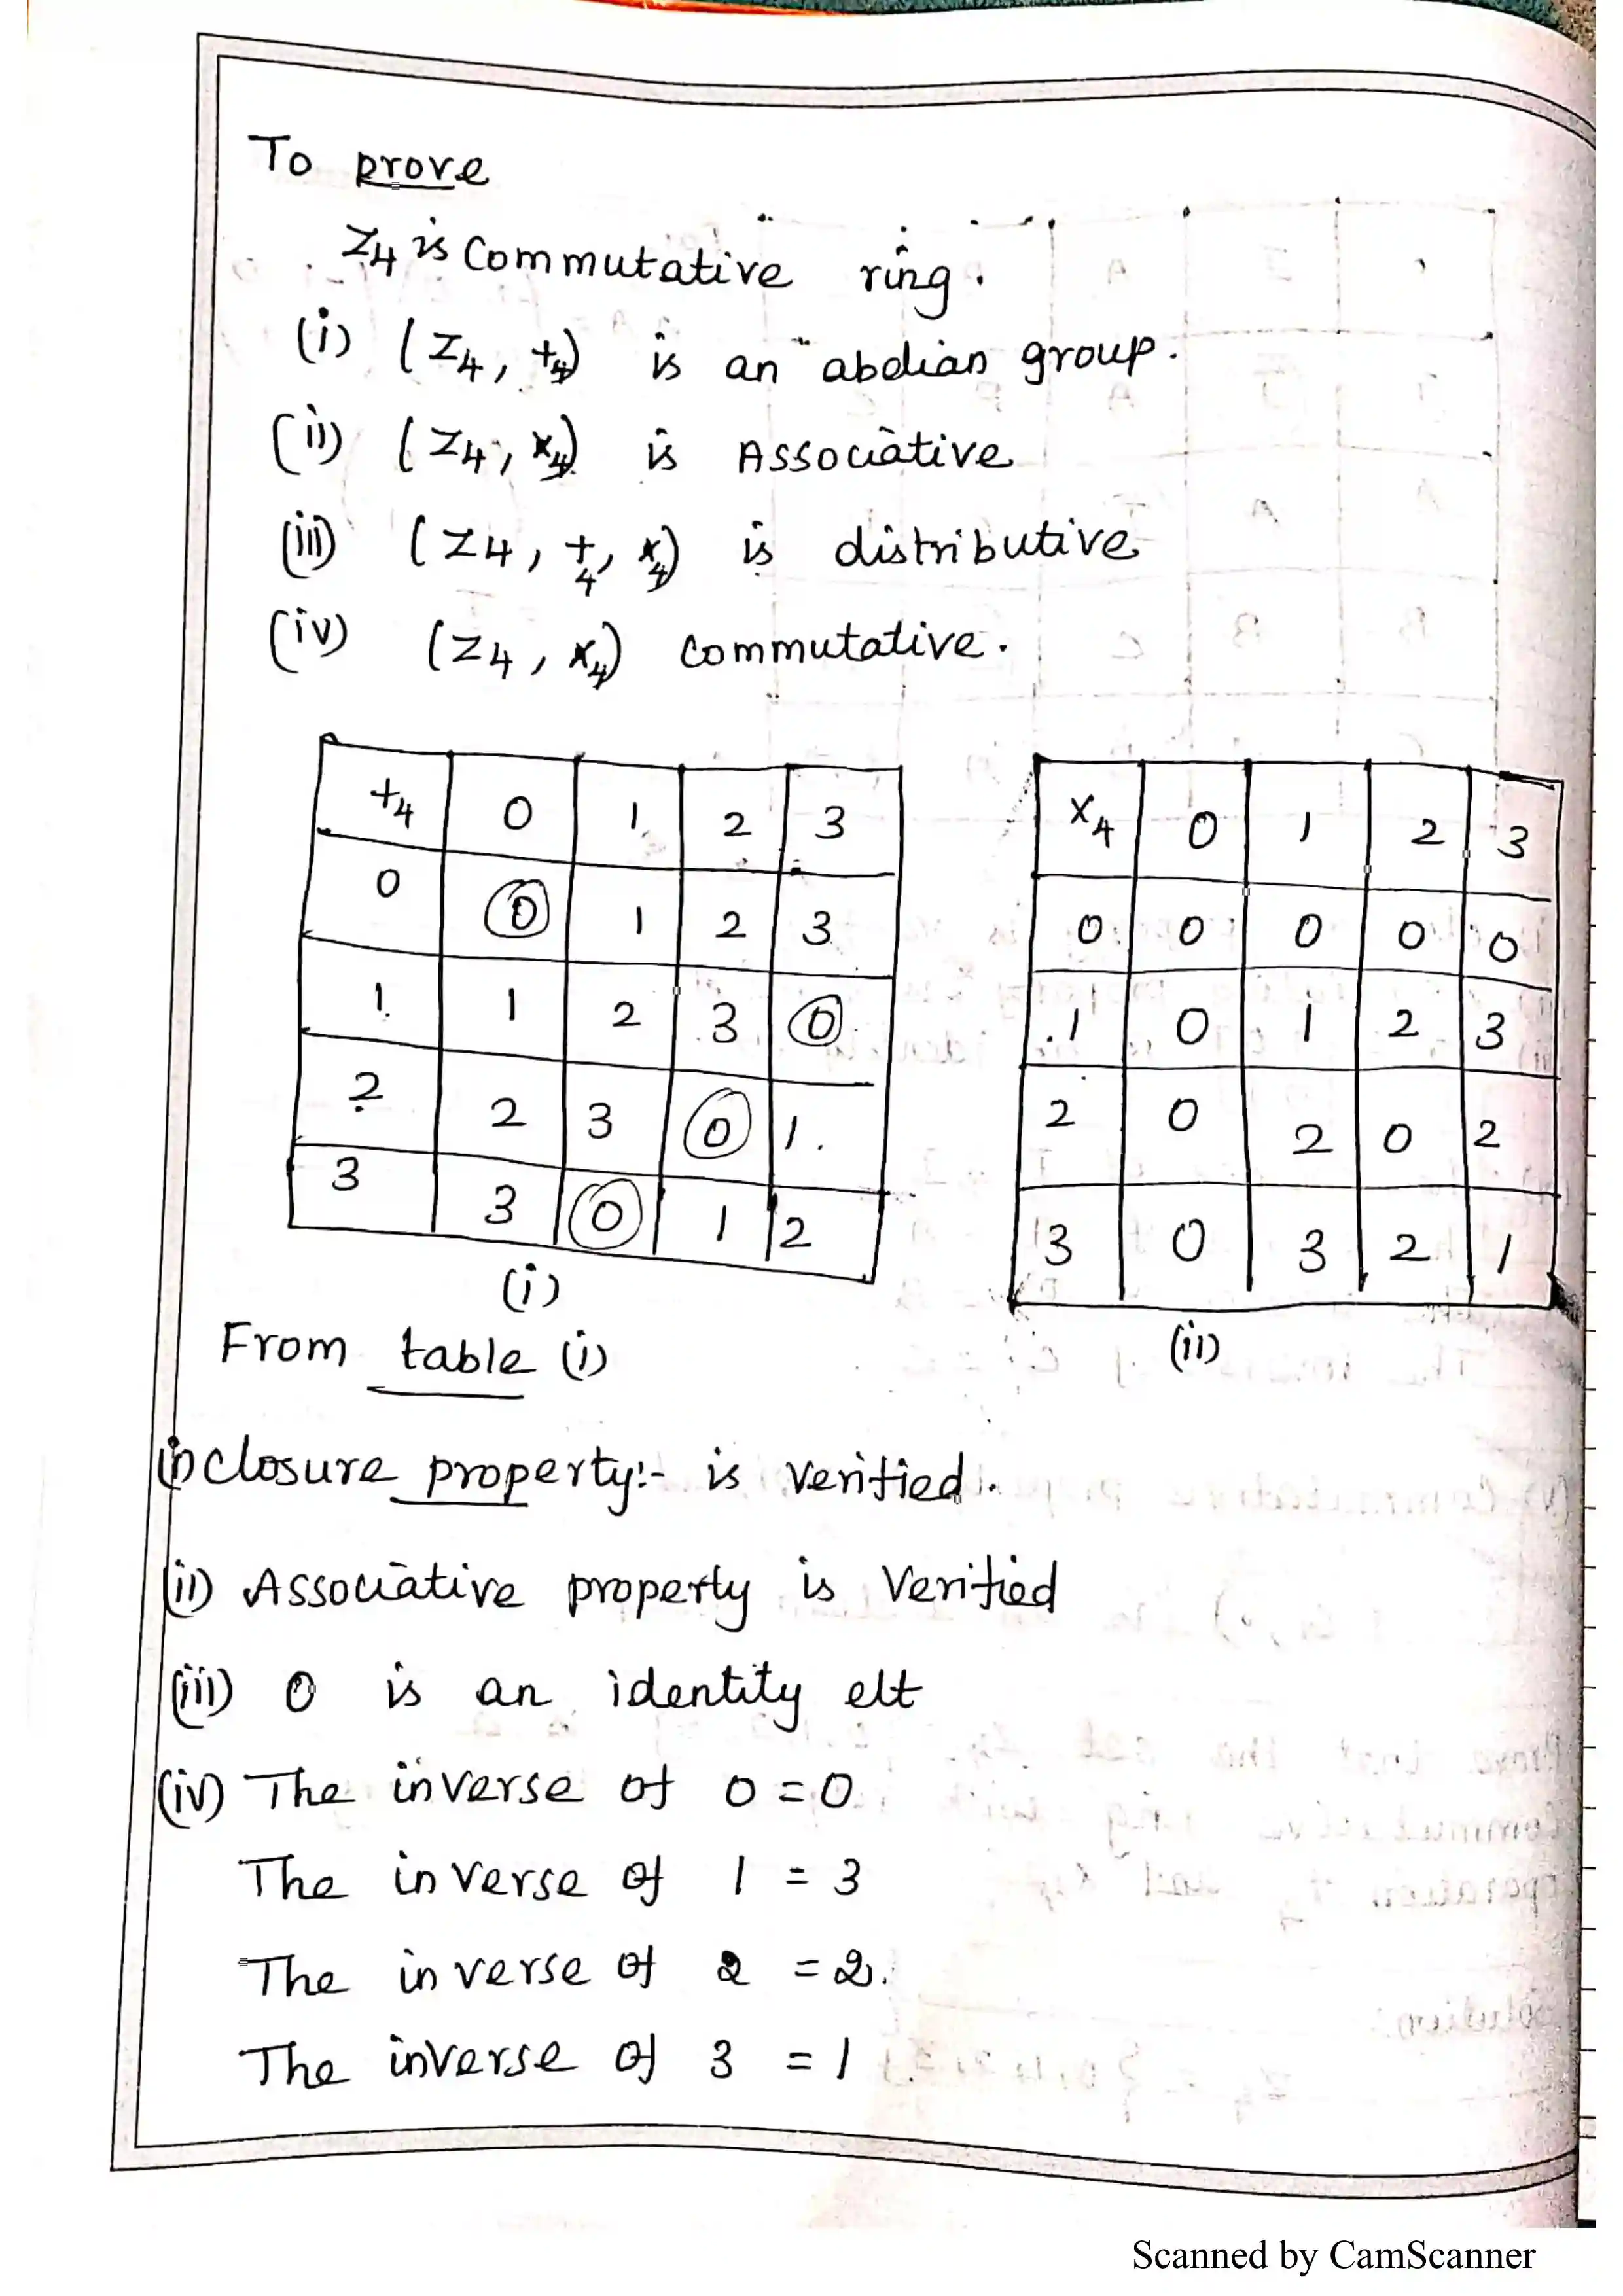 To prove
Z4 is Commutative ring.
(i) (Z4, +4) is an abelian group.
(ii) (Z4, x4) is Associative
(iii) (Z4, +4, x4) is distributive
(iv) (Z4, x4) commutative.
+4 0 1 2 3
0 0 1 2 3
1 1 2 3 0
2 2 3 0 1
3 3 0 1 2
(i)
x4 0 1 2 3
0 0 0 0 0
1 0 1 2 3
2 0 2 0 2
3 0 3 2 1
(ii)
From table (i)
(i) Closure property:- is verified.
(ii) Associative property is Verified
(iii) 0 is an identity elt
(iv) The inverse of 0 = 0
The inverse of 1 = 3
The inverse of 2 = 2.
The inverse of 3 = 1
Scanned by CamScanner